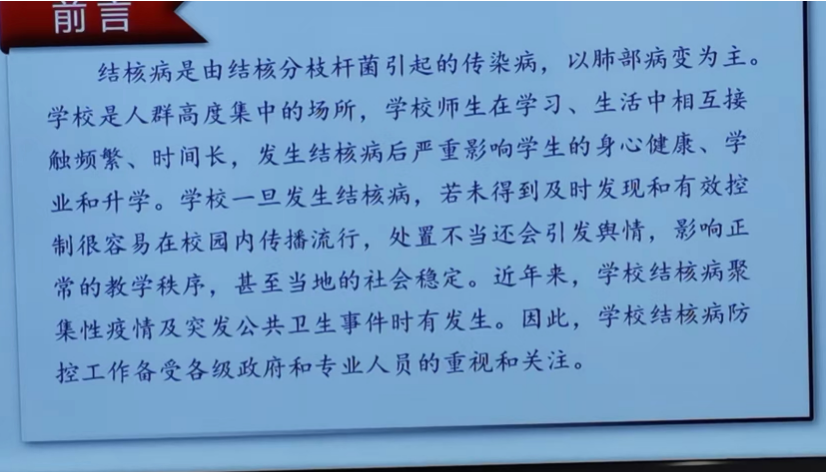 前言
结核病是由结核分枝杆菌引起的传染病，以肺部病变为主。
学校是人群高度集中的场所，学校师生在学习、生活中相互接
触频繁、时间长，发生结核病后严重影响学生的身心健康、学
业和升学。学校一旦发生结核病，若未得到及时发现和有效控
制很容易在校园内传播流行，处置不当还会引发舆情，影响正
常的教学秩序，甚至当地的社会稳定。近年来，学校结核病聚
集性疫情及突发公共卫生事件时有发生。因此，学校结核病防
控工作备受各级政府和专业人员的重视和关注。